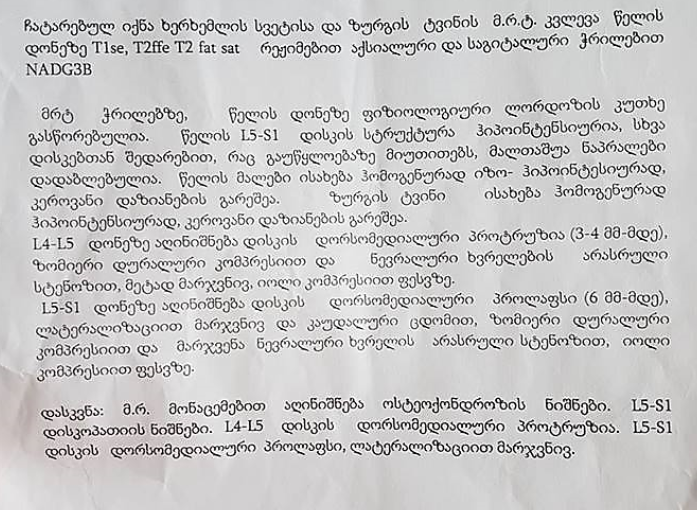 ჩატარებულ იქნა ხერხემლის სვეტისა და ზურგის ტვინის მ.რ.ტ. კვლევა წელის
დონეზე T1se, T2ffe T2 fat sat რეჟიმებით აქსიალური და საგიტალური ჭრილებით
NADG3B
მრტ ჭრილებზე, წელის დონეზე ფიზიოლოგიური ლორდოზის კუთხე
გასწორებულია. წელის L5-S1 დისკის სტრუქტურა ჰიპოინტენსიურია, სხვა
დისკებთან შედარებით, რაც გაუწყლოებაზე მიუთითებს, მალთაშუა ნაპრალები
დადაბლებულია. წელის მალები ისახება ჰომოგენურად იზო- ჰიპოინტესიურად,
კეროვანი დაზიანების გარეშეა. ზურგის ტვინი ისახება ჰომოგენურად
ჰიპოინტენსიურად, კეროვანი დაზიანების გარეშეა.
L4-L5 დონეზე აღინიშნება დისკის დორსომედიალური პროტრუზია (3-4 მმ-მდე),
ზომიერი დურალური კომპრესიით და ნევრალური ხვრელების არასრული
სტენოზით, მეტად მარჯვნივ, იოლი კომპრესიით ფესვზე.
L5-S1 დონეზე აღინიშნება დისკის დორსომედიალური პროლაფსი (6 მმ-მდე),
ლატერალიზაციით მარჯვნივ და კაუდალური ცდომით, ზომიერი დურალური
კომპრესიით და მარჯვენა ნევრალური ხვრელის არასრული სტენოზით, იოლი
კომპრესიით ფესვზე.
დასკვნა: მ.რ. მონაცემებით აღინიშნება ოსტეოქონდროზის ნიშნები. L5-S1
დისკოპათიის ნიშნები. L4-L5 დისკის დორსომედიალური პროტრუზია. L5-S1
დისკის დორსომედიალური პროლაფსი, ლატერალიზაციით მარჯვნივ.